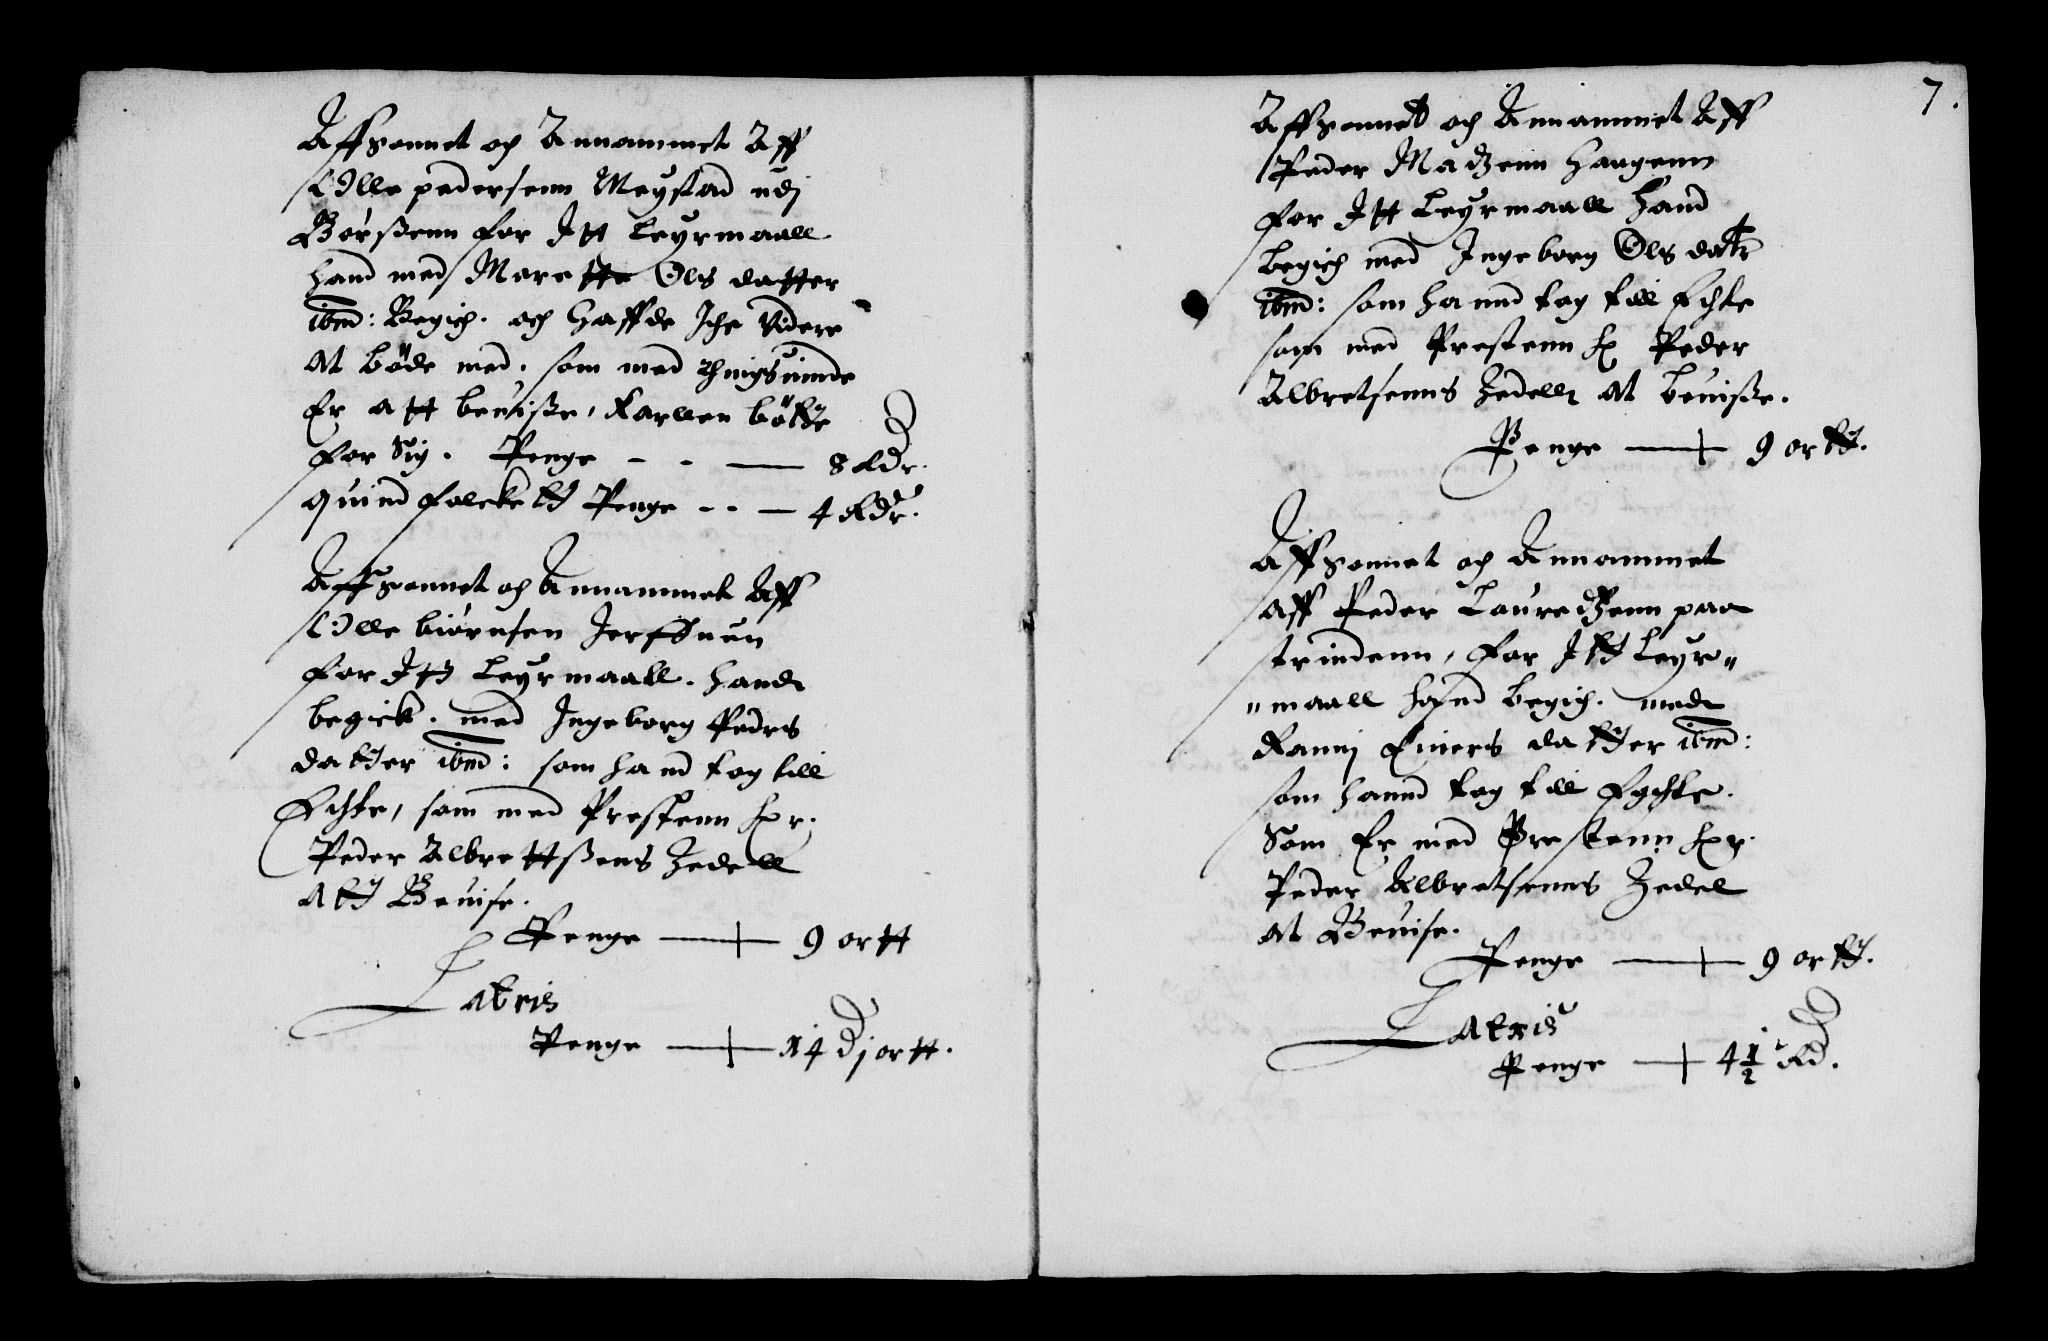 Affsonnet och Annammet Aff
Olle pedersenn Meystad udj
Børßenn for Itt Leyrmaall
hand med Marette Ols datter
ibm: Begich. och Haffde Iche Videre
at bøde med. som med thingsuinde
Er att beuiße, Karllen bøtte
for Sig. Penge - - — 8 Rdr.
quindfolckett Penge - - — 4 Rdr.
Affsonnet och Annammet Aff
Olle biørnsen
for Itt Leyrmaall. hand
begick. med Ingeborg Peders
datter ibm: som hand tog till
Echte, som med Prestenn Hr.
Peder Albrettßens Zedell
att Beuise.
Penge — 9 ortt
Lateris
Penge — 14 D j ortt.
7.
Affsonnet och Annammet Aff
Peder Madzenn Haugenn
for Itt Leyrmaall Hand
begich med Ingeborg Ols datr
ibm: som hannd tog till Echte
som med Prestenn H Peder
Albretsenns Zedell at beuiße.
Penge — 9 ortt.
Affsonnet och Annammet
aff Peder Lauredzenn paa
strindenn, for Itt Leyr"
"maall hand begich. med
Rannj Einers datter ibm:
som hannd tog till Egchte.
Som Er med Prestenn Hr.
Peder Albretsenns Zedel
at Beuise.
Penge — 9 ortt.
Lateris
Penge — 4 1/2 Rd.